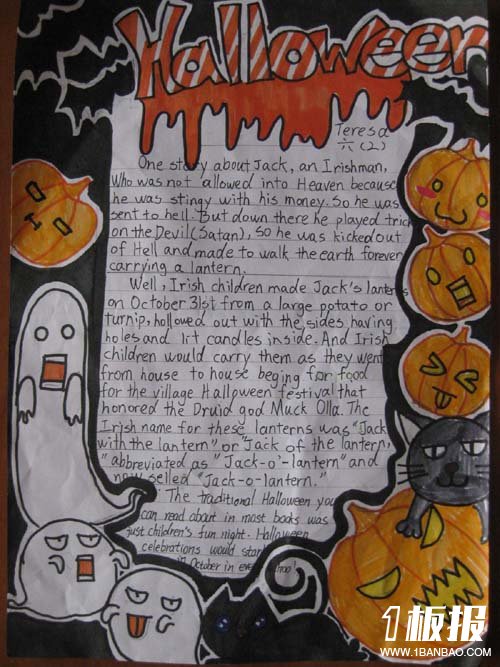 Halloween
Teresa
六(2)
One story about Jack, an Irishman,
Who was not allowed into Heaven because
he was stingy with his money. So he was
sent to hell. But down there he played trick
on the Devil(Satan), So he was kicked out
of Hell and made to walk the earth forever
carrying a lantern.
Well, Irish children made Jack's lanterns
on October 31st from a large potato or
turnip, hollowed out with the sides having
holes and lit candles inside. And Irish
children would carry them as they went
from house to house beging for food
for the village Halloween festival that
honored the Druid god Muck Olla. The
Irish name for these lanterns was "Jack
with the lantern" or "Jack of the lantern,
" abbreviated as " Jack-o'-lantern" and
now selled "Jack-o-lantern."
The traditional Halloween you
can read about in most books was
just children's fun night. Halloween
celebrations would start
October in every
1板报
WWW.1BANBAO.COM